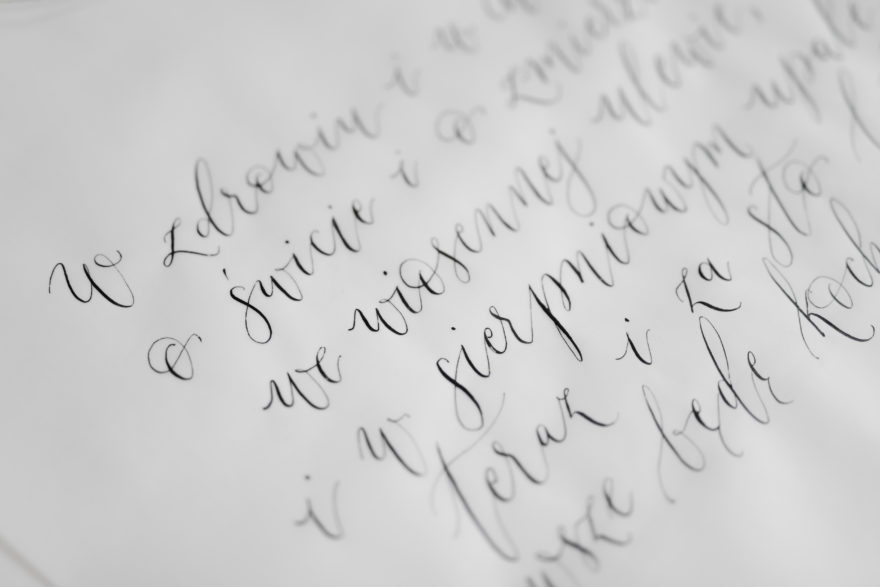 W zdrowiu i w
o świcie i o zmierz
we wiosennej ulewie,
i w sierpniowym upale
teraz i za sto l
wsze będę koch